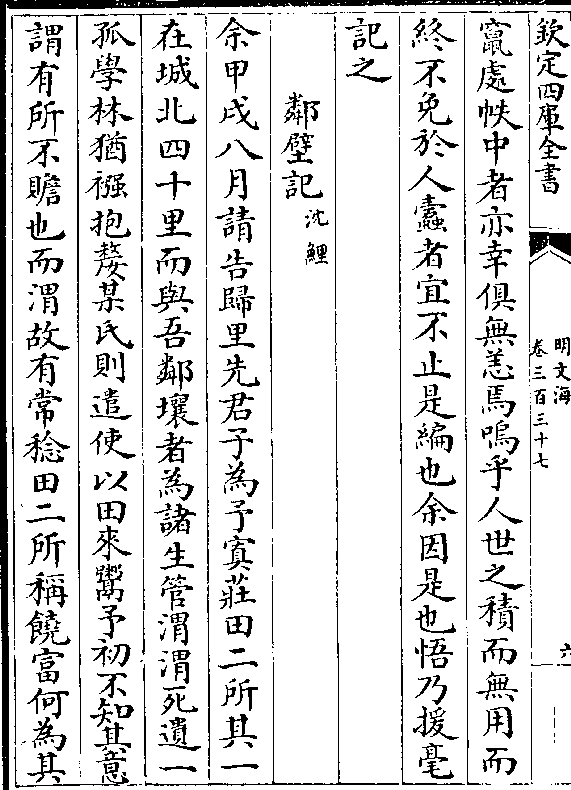 欽定四庫全書
明文海
卷三百三十七
六
竄處帙中者亦幸俱無恙焉嗚乎人世之積而無用而
終不免於人蠧者宜不止是編也余因是也悟乃援毫
記之
鄰壁記沈鯉
余甲戌八月請告歸里先君子為予寘莊田二所其一
在城北四十里而與吾鄰壤者為諸生管渭渭死遺一
孤學林猶襁抱嫠某氏則遣使以田來鬻予初不知其意
謂有所不贍也而渭故有常稔田二所稱饒富何為其